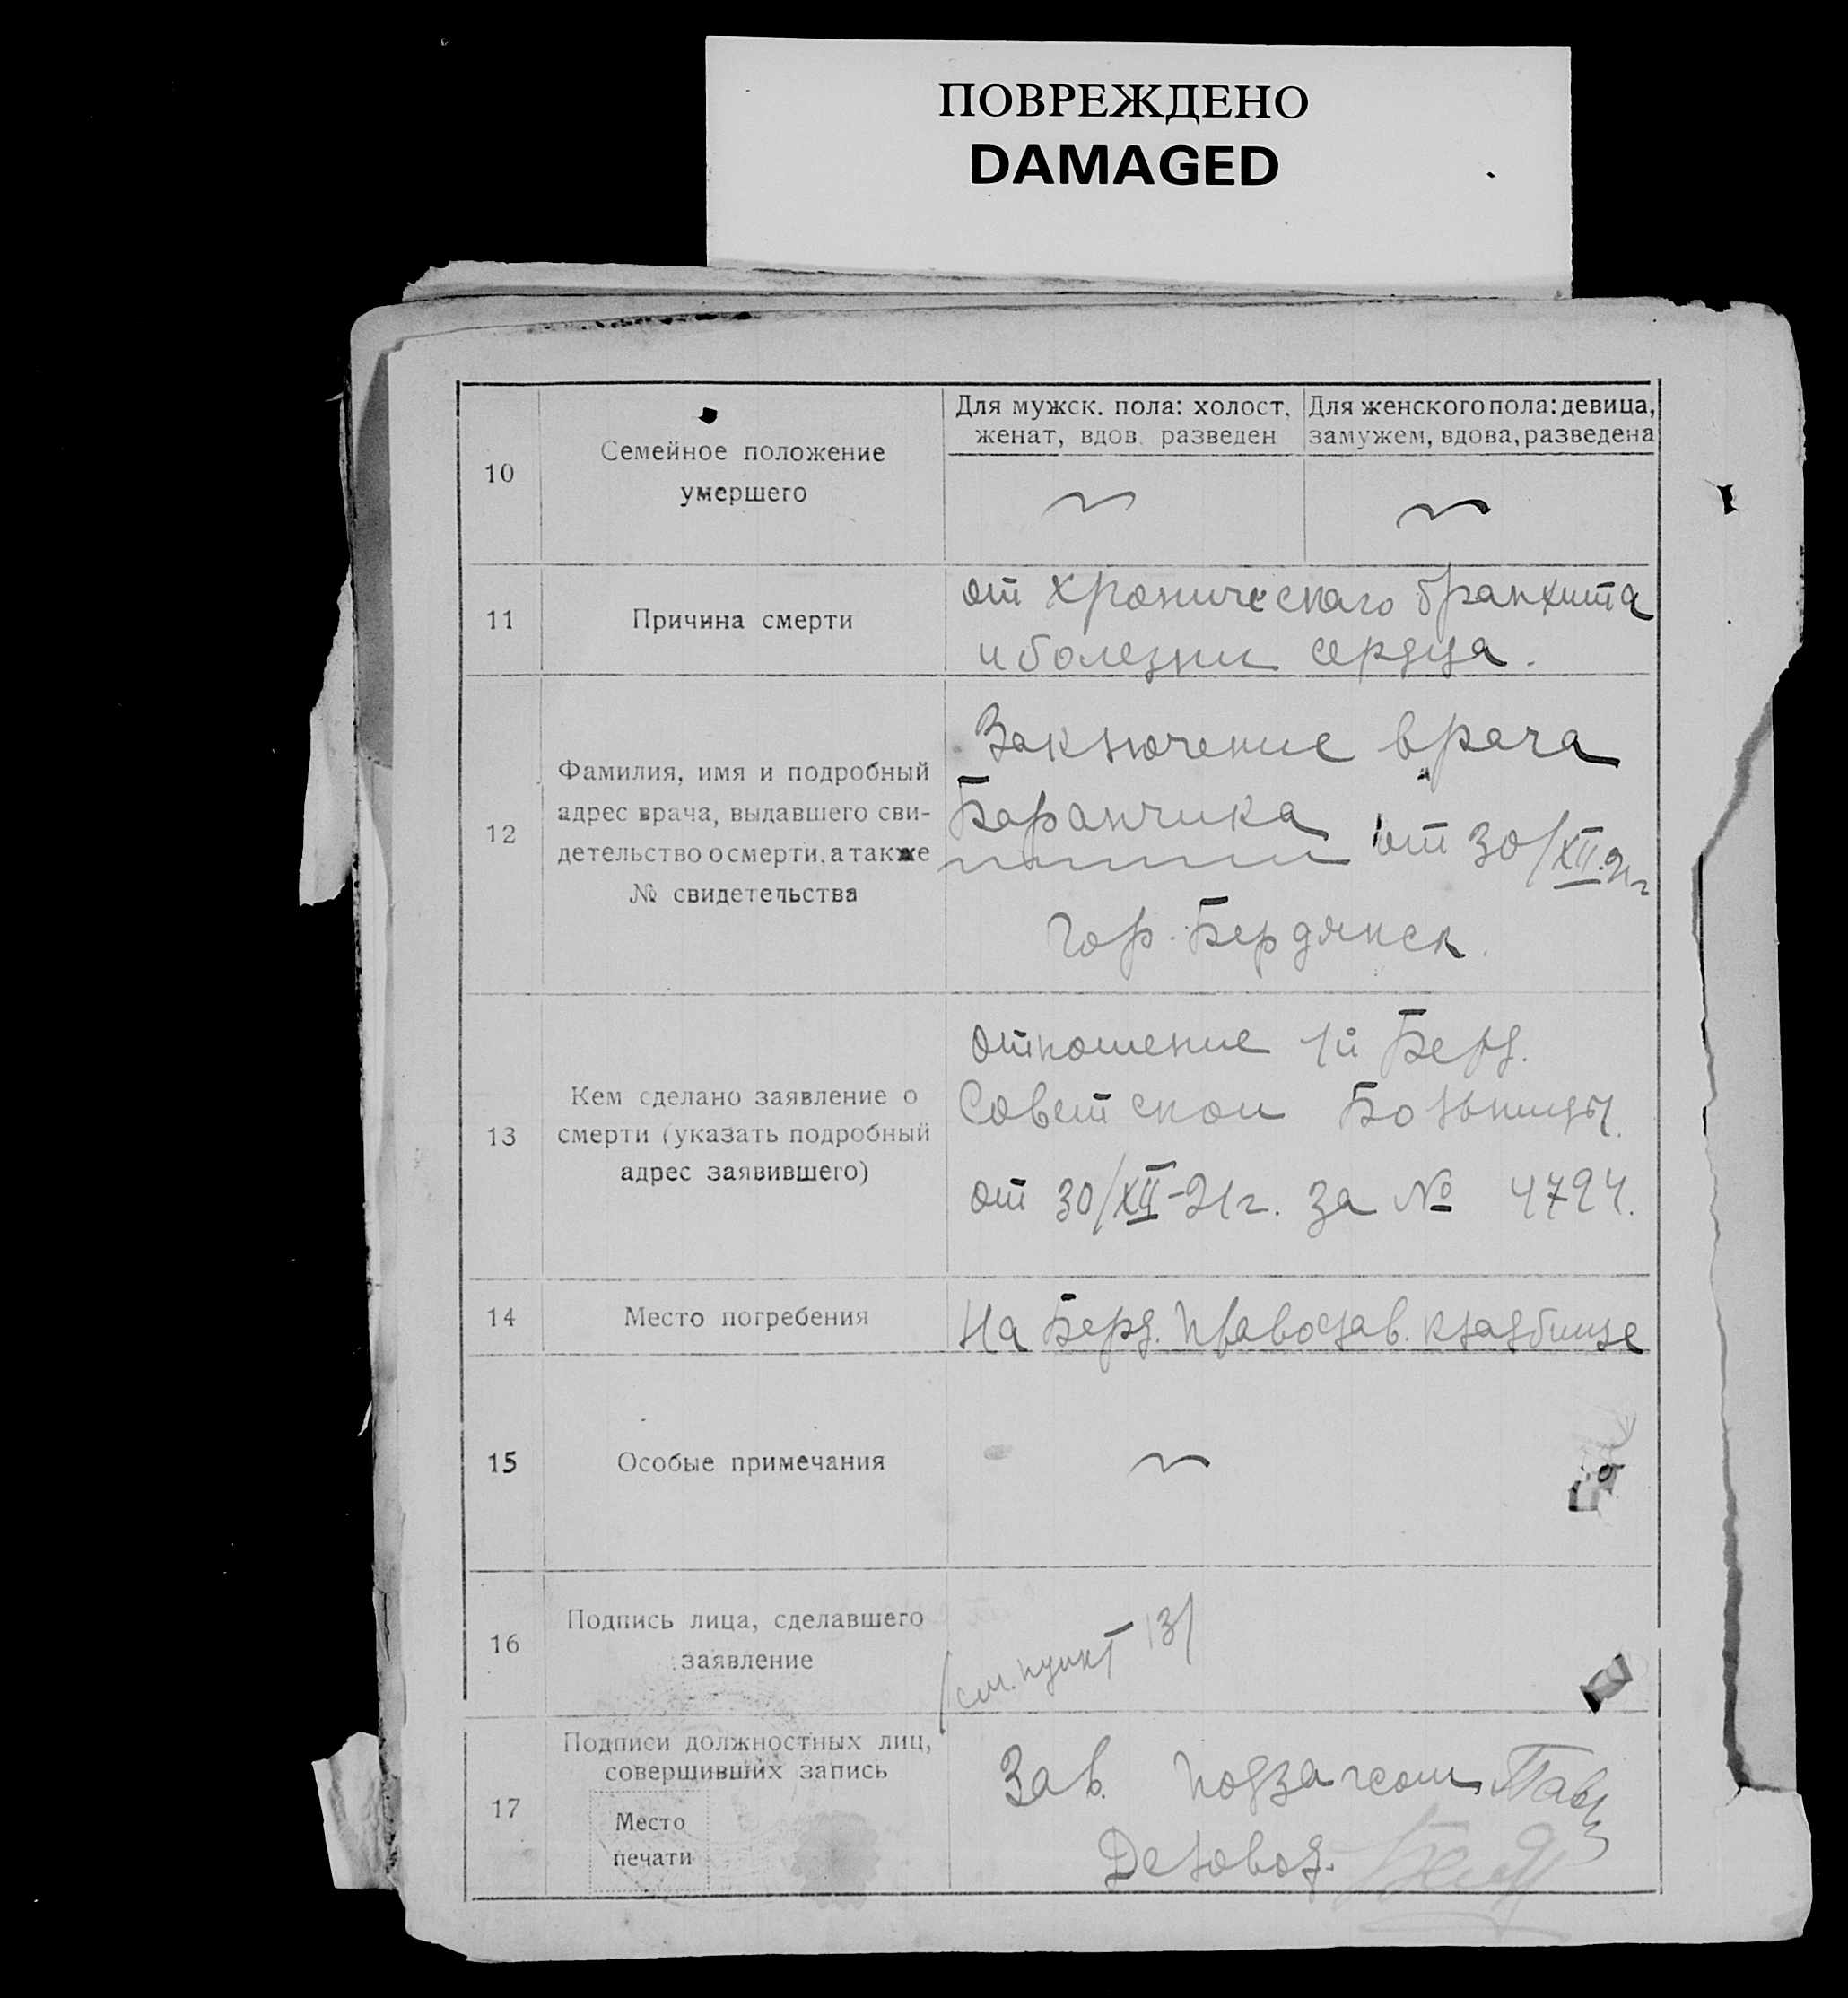 ПОВРЕЖДЕНО
DAMAGED
10
Семейное положение
умершего
Для мужск. пола: холост,
женат, вдов. разведен
Для женского пола: девица,
замужем, вдова, разведена
11
Причина смерти
от хронического бранхита
и болезни сердца.
12
Фамилия, имя и подробный
адрес врача, выдавшего сви-
детельство о смерти, а также
№ свидетельства
Заключение врача
Баранчика от 30/XII.21г
гор. Бердянск.
13
Кем сделано заявление о
смерти (указать подробный
адрес заявившего)
Отношение 1й Берд.
Советской Больницы.
от 30/XII-21г. за № 4794.
14
Место погребения
На Берд. Православ. кладбище
15
Особые примечания
16
Подпись лица, сделавшего
заявление
/см. пункт 13/
17
Подписи должностных лиц,
совершивших запись
Место
печати
Зав. подзагсом
Деловод.